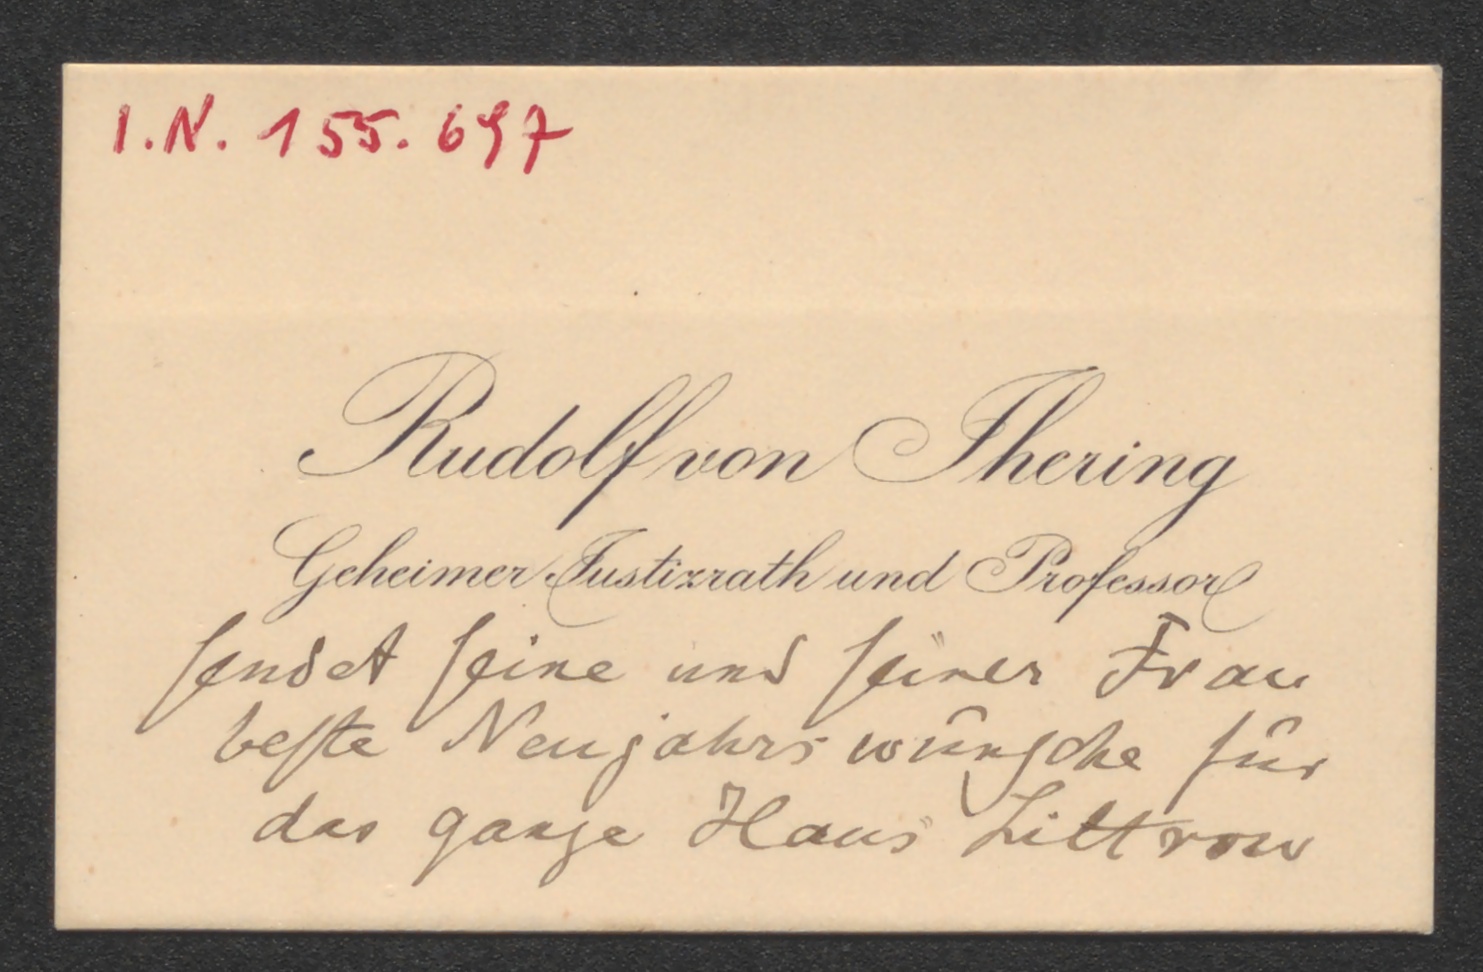 I.N. 155.697
Rudolf von Jhering
Geheimer Justizrath und Professor
sendet seine und seiner Frau
beste Neujahrswünsche für
das ganze Haus Littrow